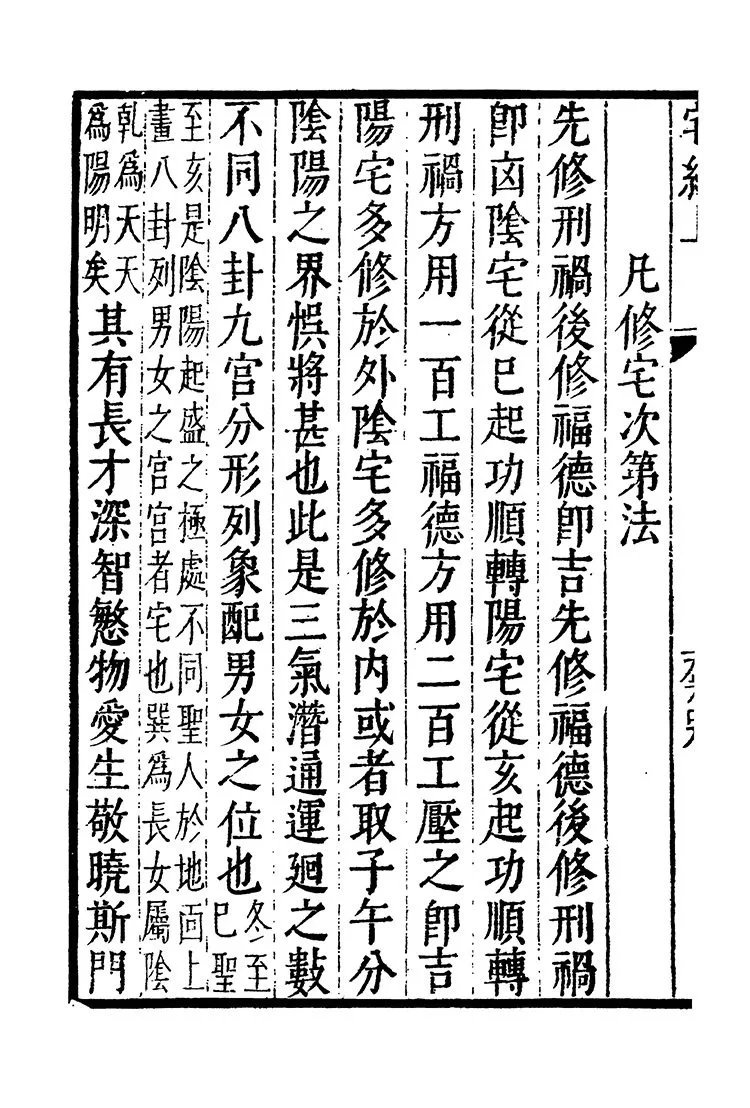 宅經上
凡修宅次第法
先修刑禍後修福德卽吉先修福德後修刑禍
卽凶陰宅從巳起功順轉陽宅從亥起功順轉
刑禍方用一百工福德方用二百工壓之卽吉
陽宅多修於外陰宅多修於內或者取子午分
陰陽之界悞將甚也此是三氣潛通運廻之數
不同八卦九宮分形列象配男女之位也冬至
巳聖
至亥是陰陽起盛之極處不同聖人於地面上
畫八卦列男女之宮宮者宅也巽爲長女屬陰
乾爲天天
爲陽明矣
其有長才深智慜物愛生敬曉斯門